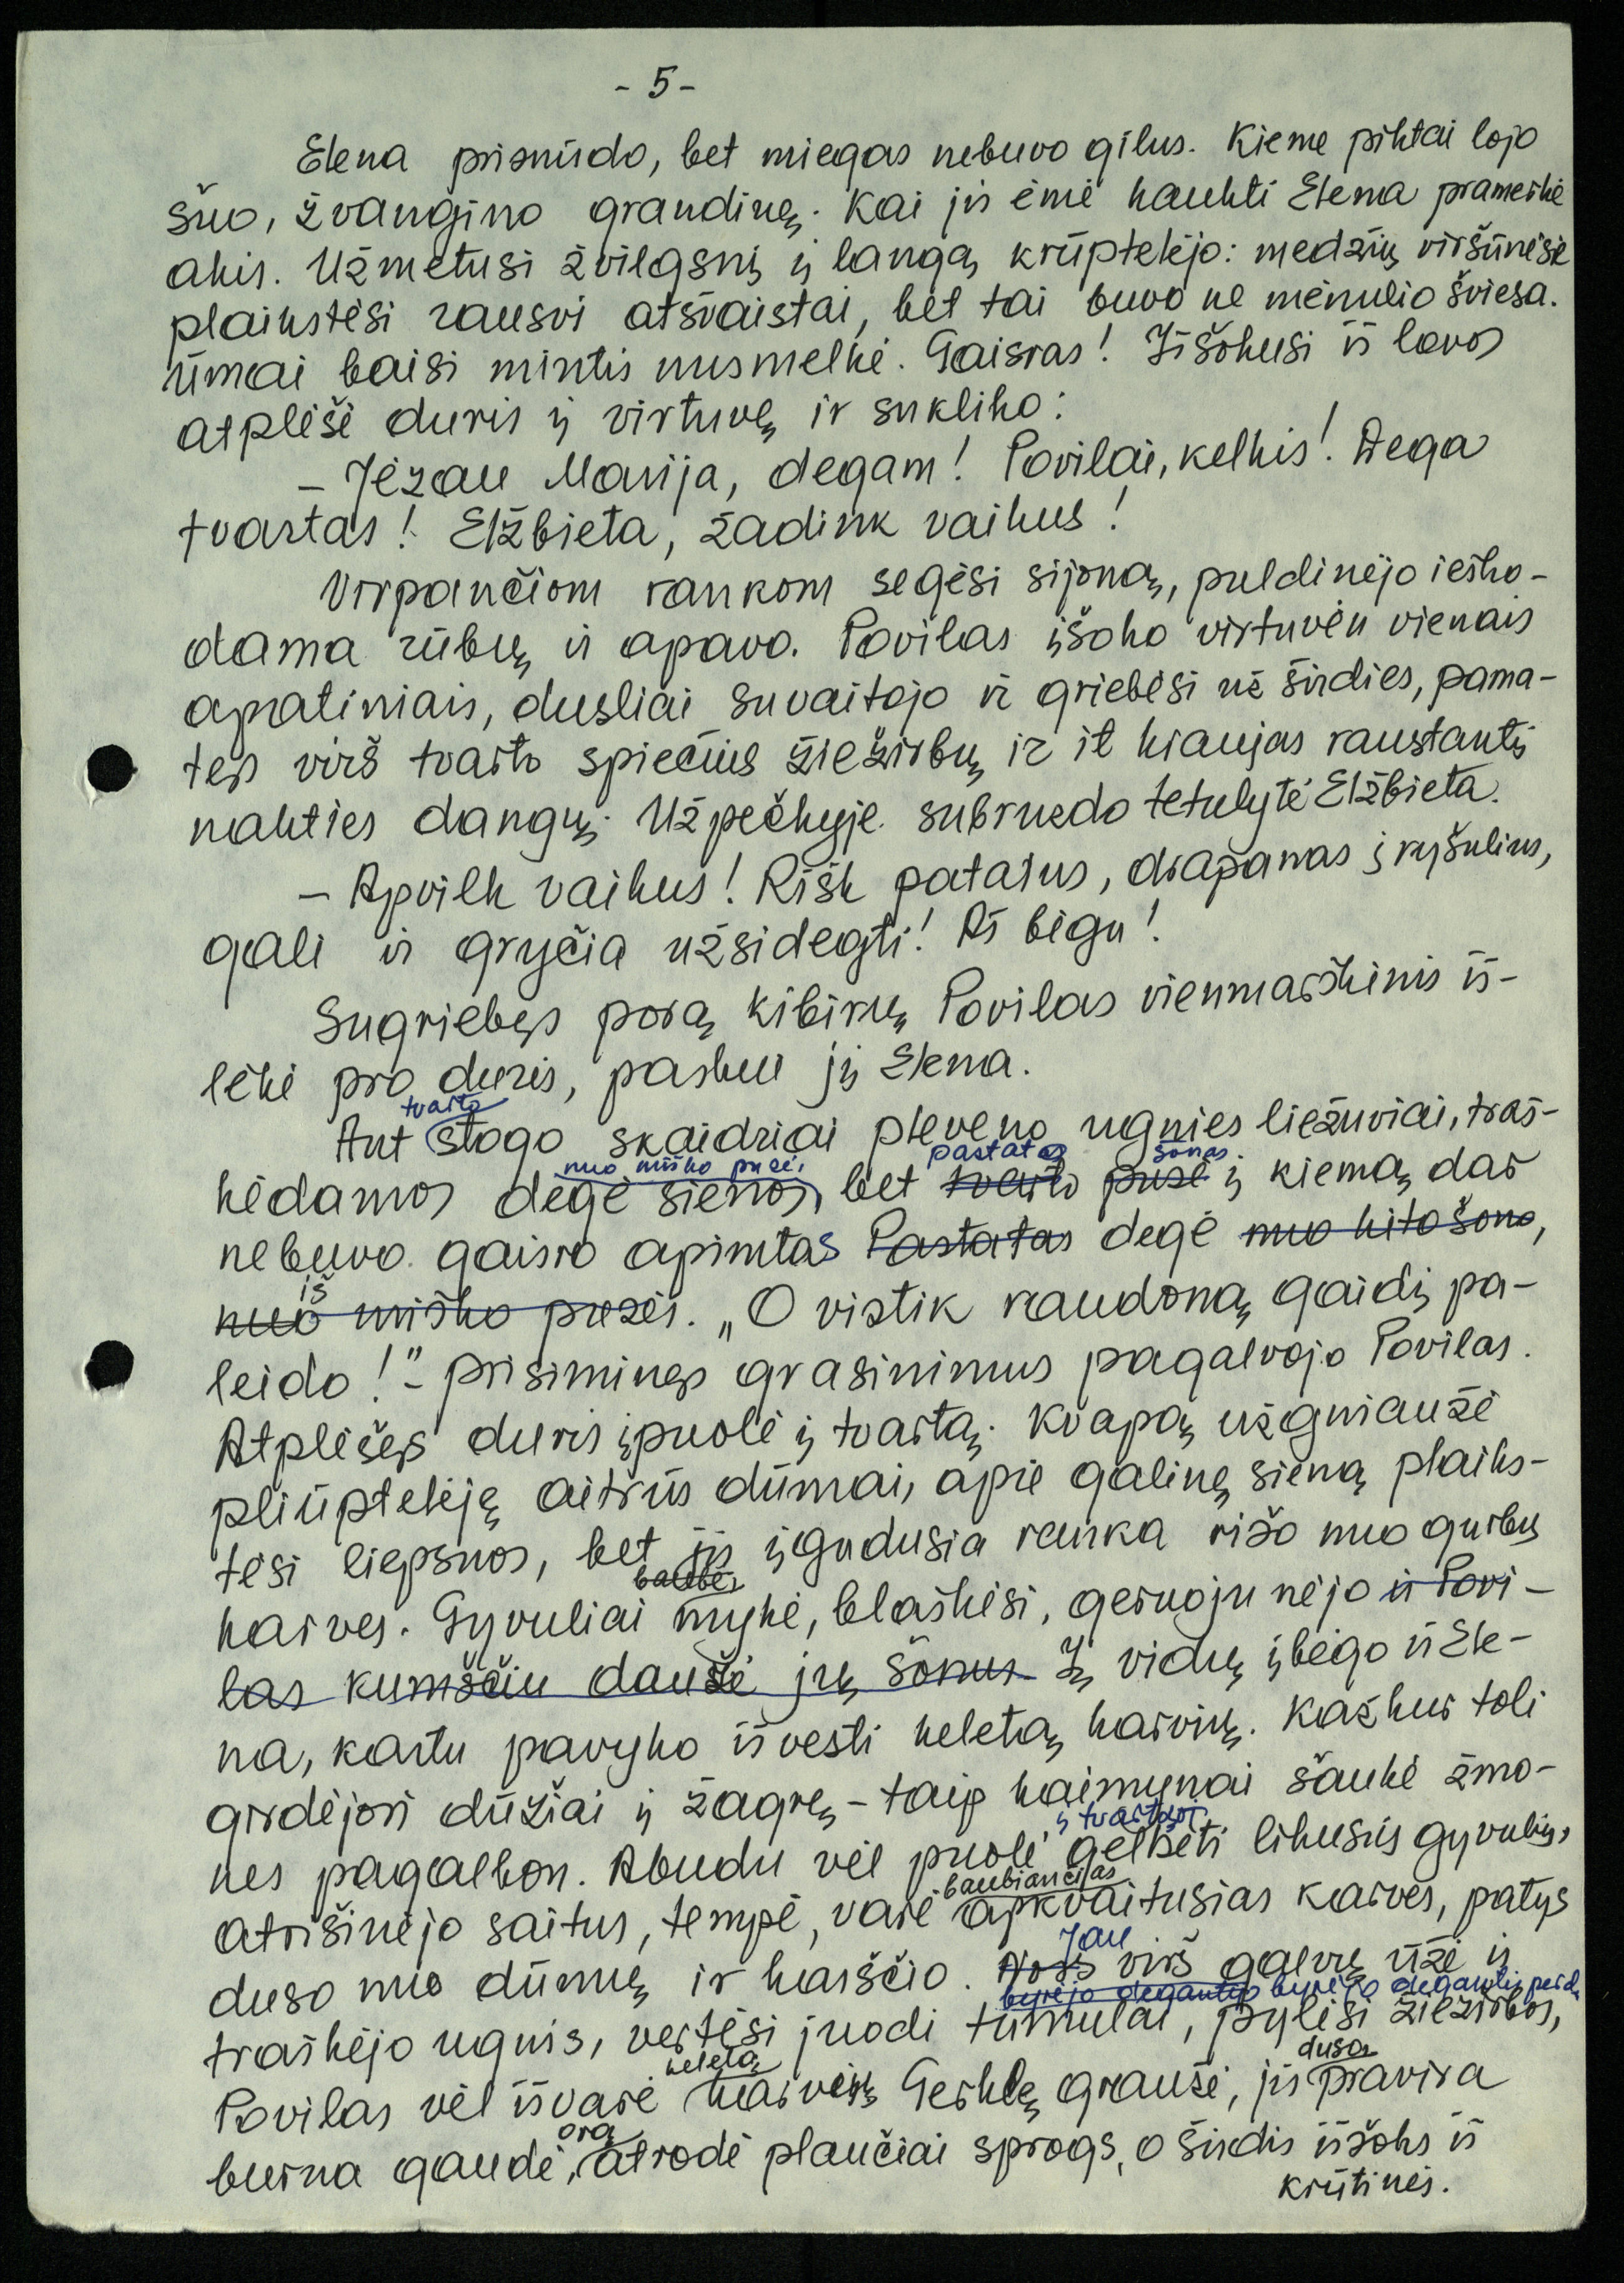 - 5 -
Elena prisnūdo, bet miegas nebuvo gilus. Kieme piktai lojo
šuo, žvangino grandinę. Kai jis ėmė kaukti Elena pramerkė
akis. Užmetusi žvilgsnį į langą krūptelėjo: medžių viršūnėse
plaikstėsi rausvi atšvaistai, bet tai buvo ne mėnulio šviesa.
Ūmai baisi mintis nusmelkė. Gaisras! Iššokusi iš lovos
atplėšė duris į virtuvę ir sukliko:
– Jėzau Marija, degam! Povilai, kelkis! Dega
tvartas! Elžbieta, žadink vaikus!
Virpančiom rankom segėsi sijoną, puldinėjo ieško-
dama rūbų ir apavo. Povilas įšoko virtuvėn vienais
apatiniais, dusliai suvaitojo ir griebėsi už širdies, pama-
tęs virš tvarto spiečius žiežirbų ir it kraujas raustantį
nakties dangų. Užpečkyje subruzdo tetulytė Elžbieta.
– Apvilk vaikus! Rišk patalus, drapanas į ryšulius,
gali ir gryčia užsidegti! Aš bėgu!
Sugriebęs porą kibirų Povilas vienmarškinis iš-
lėkė pro duris, paskui jį Elena.
tvarto
Ant stogo skaidriai pleveno ugnies liežuviai, traš-
nuo miško pusė, pastatas šonas
kėdamos degė sienos, bet tvarto pusė į kiemą dar
nebuvo gaisro apimtas Pastatas degė nuo kito šono,
iš
nuo miško pusės. „O vistik raudoną gaidį pa-
leido!" – prisiminęs grasinimus pagalvojo Povilas.
Atplėšęs duris įpuolė į tvartą. Kvapą užgniaužė
pliūptelėję aitrūs dūmai, apie galinę sieną plaiks-
tėsi liepsnos, bet jis įgudusia ranka rišo nuo gurbų
baubė,
karves. Gyvuliai mykė, blaškėsi, geruoju nėjo ir Povi-
las kumščiu daužė jų šonus Į vidų įbėgo ir Ele-
na, kartu pavyko išvesti keletą karvių. Kažkur toli
girdėjosi dūžiai į žagrę – taip kaimynai šaukė žmo-
į tvartą
nes pagalbon. Abudu vėl puolė gelbėti likusius gyvulius,
baubiančias
atrišinėjo saitus, tempė, varė apkvaitusias karves, patys
Jau
duso nuo dūmų ir karščio. Nors virš galvų ūžė ir
byrėjo degantys byrėjo degantys
traškėjo ugnis, vertėsi juodi tumulai, pylėsi žiežirbos,
keletą duso
Povilas vėl išvarė karvių Gerklę graužė, jis pravira
orą
burna gaudė, atrodė plaučiai sprogs, o širdis iššoks iš
krūtinės.